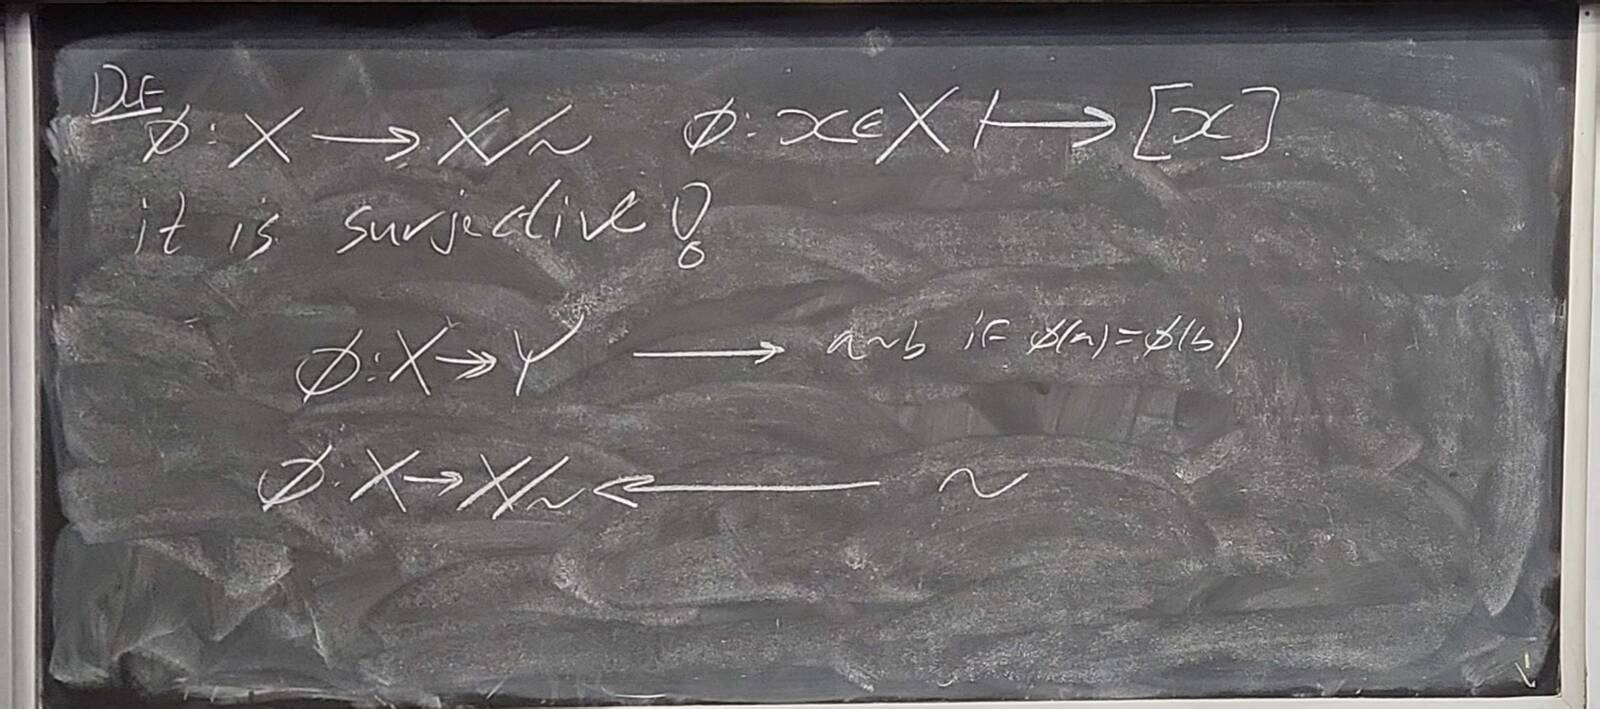 Def
ϕ: X → X/~ ϕ: x∈X ↦ [x]
it is surjective!
ϕ: X ↠ Y → a~b if ϕ(a)=ϕ(b)
ϕ: X → X/~ ← ~